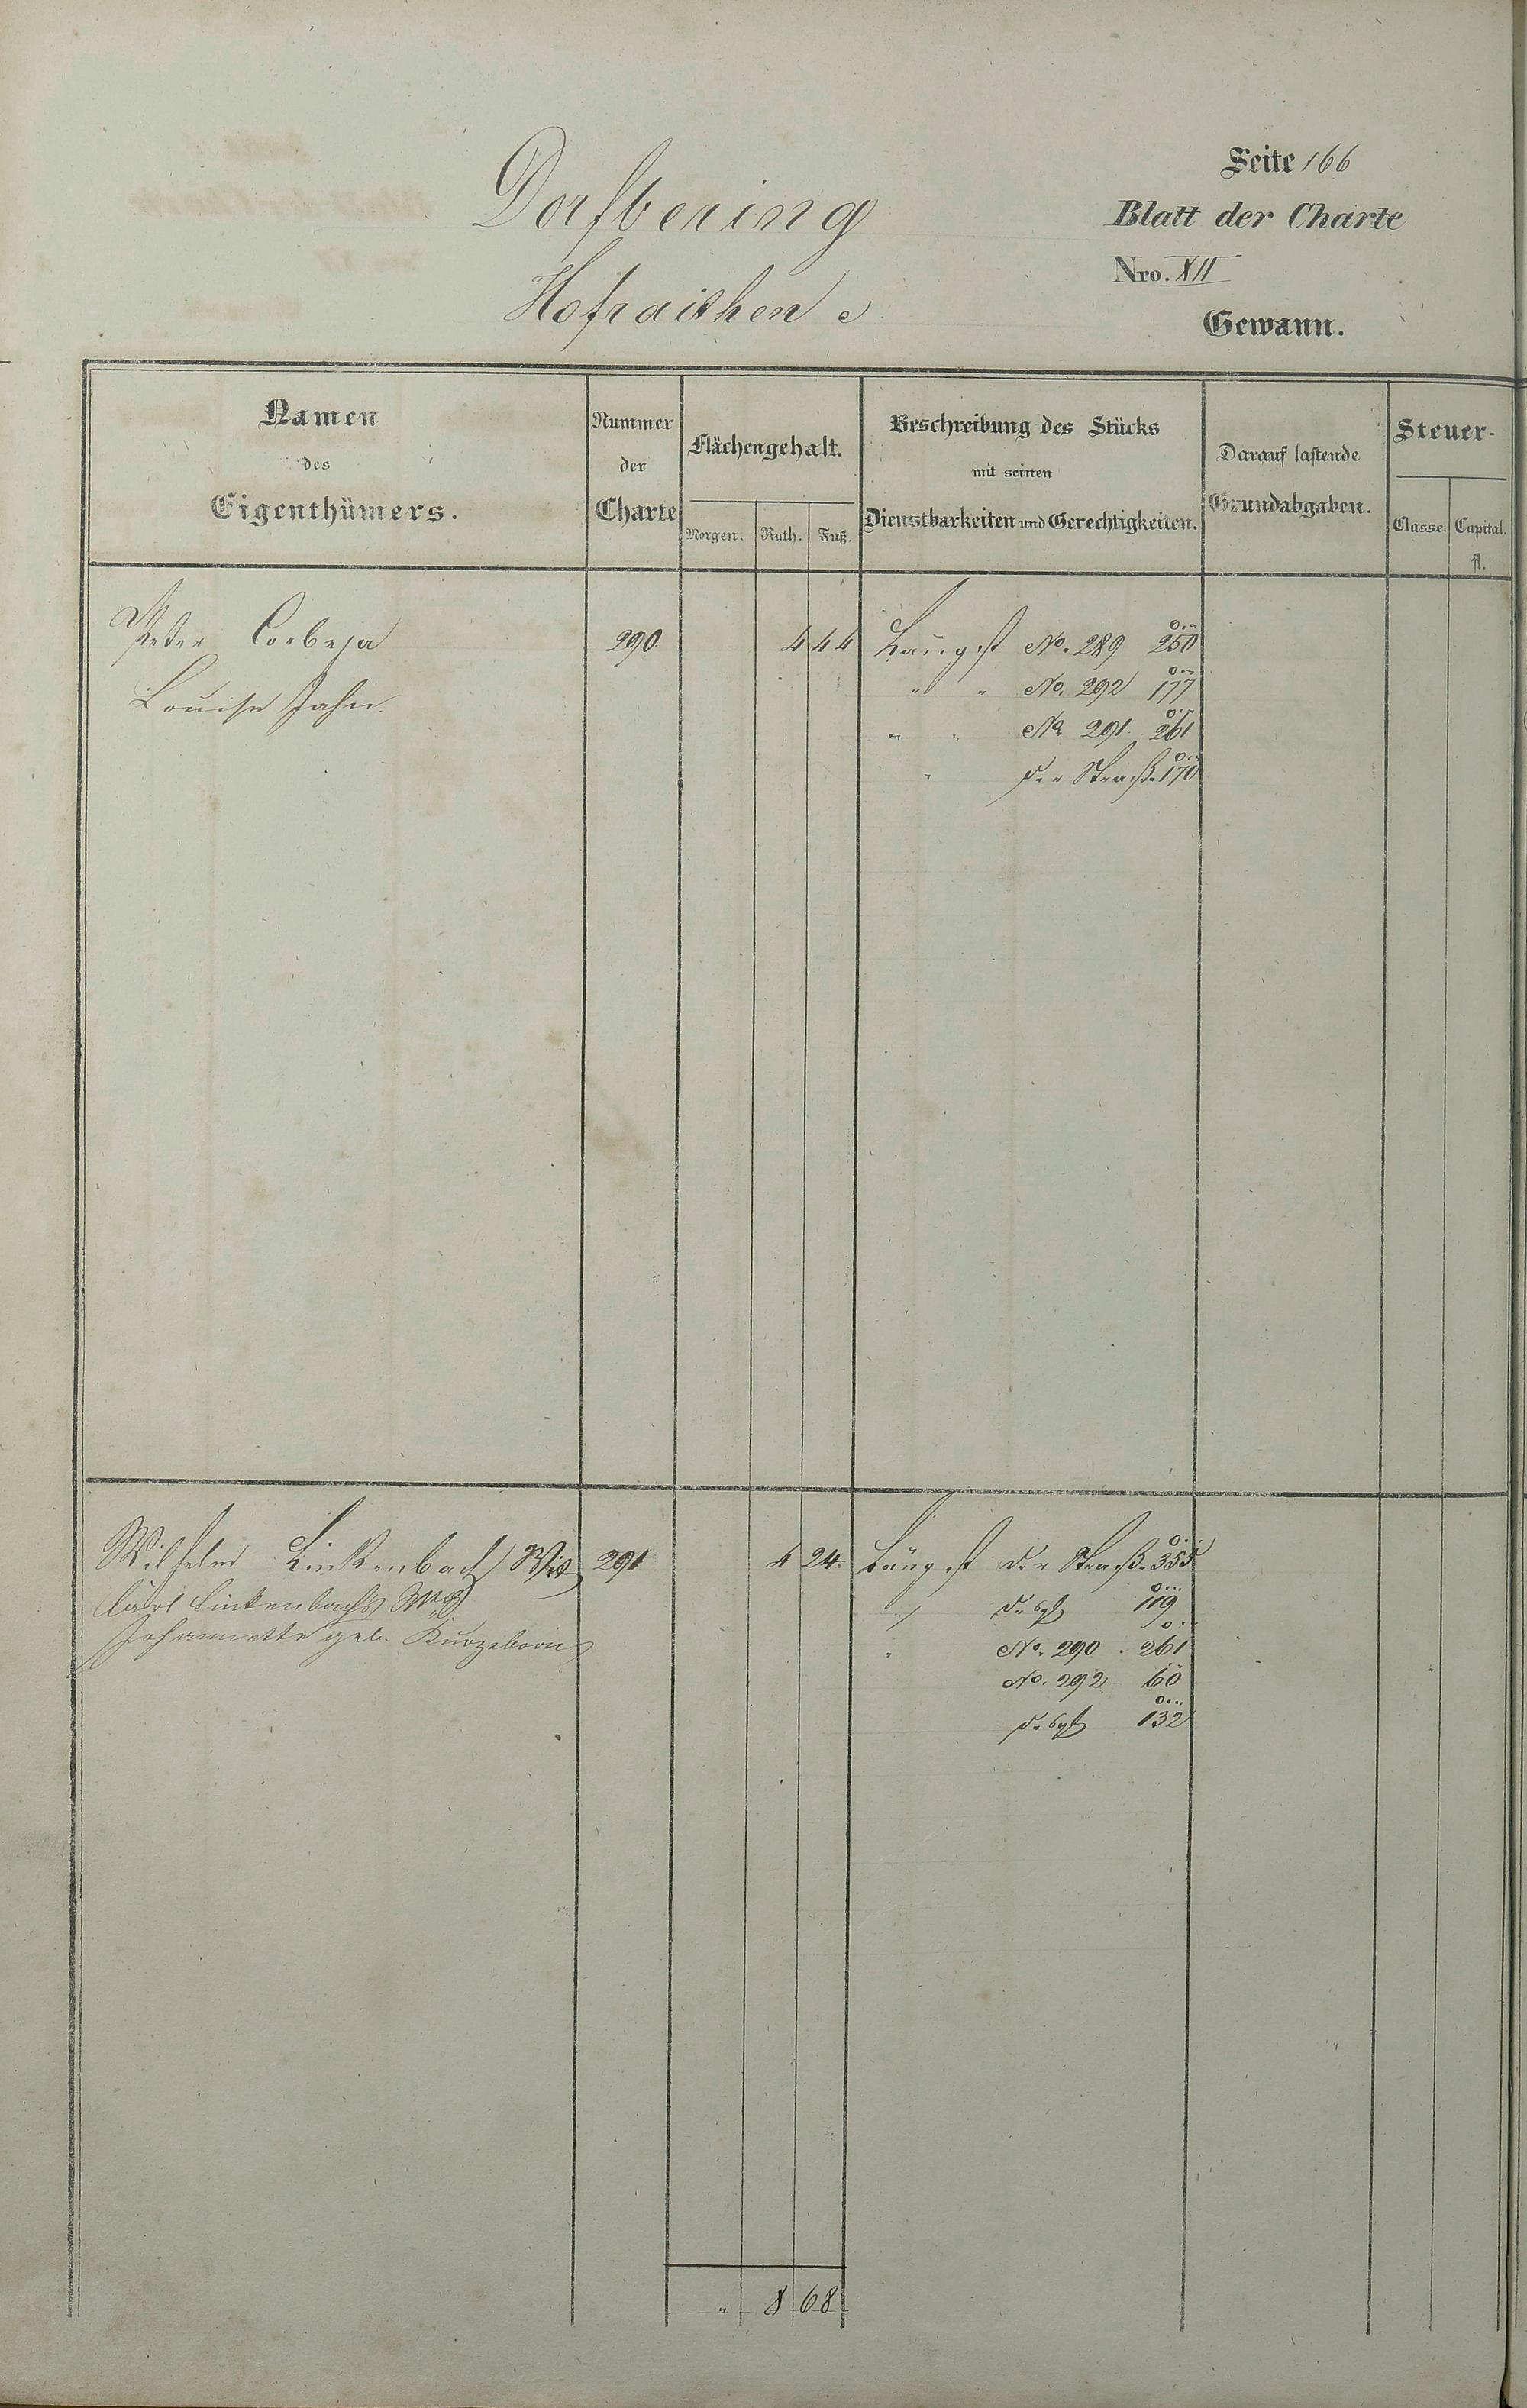 Seite 166
Dorfbering
Blatt der Charte
Nro. XII
Hofraithen
Gewann.
Namen des Eigenthümers.
Nummer der Charte
Flächengehalt.
Morgen. Ruth. Fuß.
Beschreibung des Stücks mit seinen Dienstbarkeiten und Gerechtigkeiten.
Darauf lastende Grundabgaben.
Steuer-
Classe. Capital. fl.
Peter 290 4 44 Längst No. 289 250
Louise Jahn. " " No. 292 177
" " No. 291 261
" der Straße 170
Wilhelm Linkenbach Wit 291 4 24 Längst der Straße 355
Carl Linkenbachs " desgl 119
Johannette geb. Kurzeborn " No. 290 261
No. 292 60
desgl 132
" 8 68